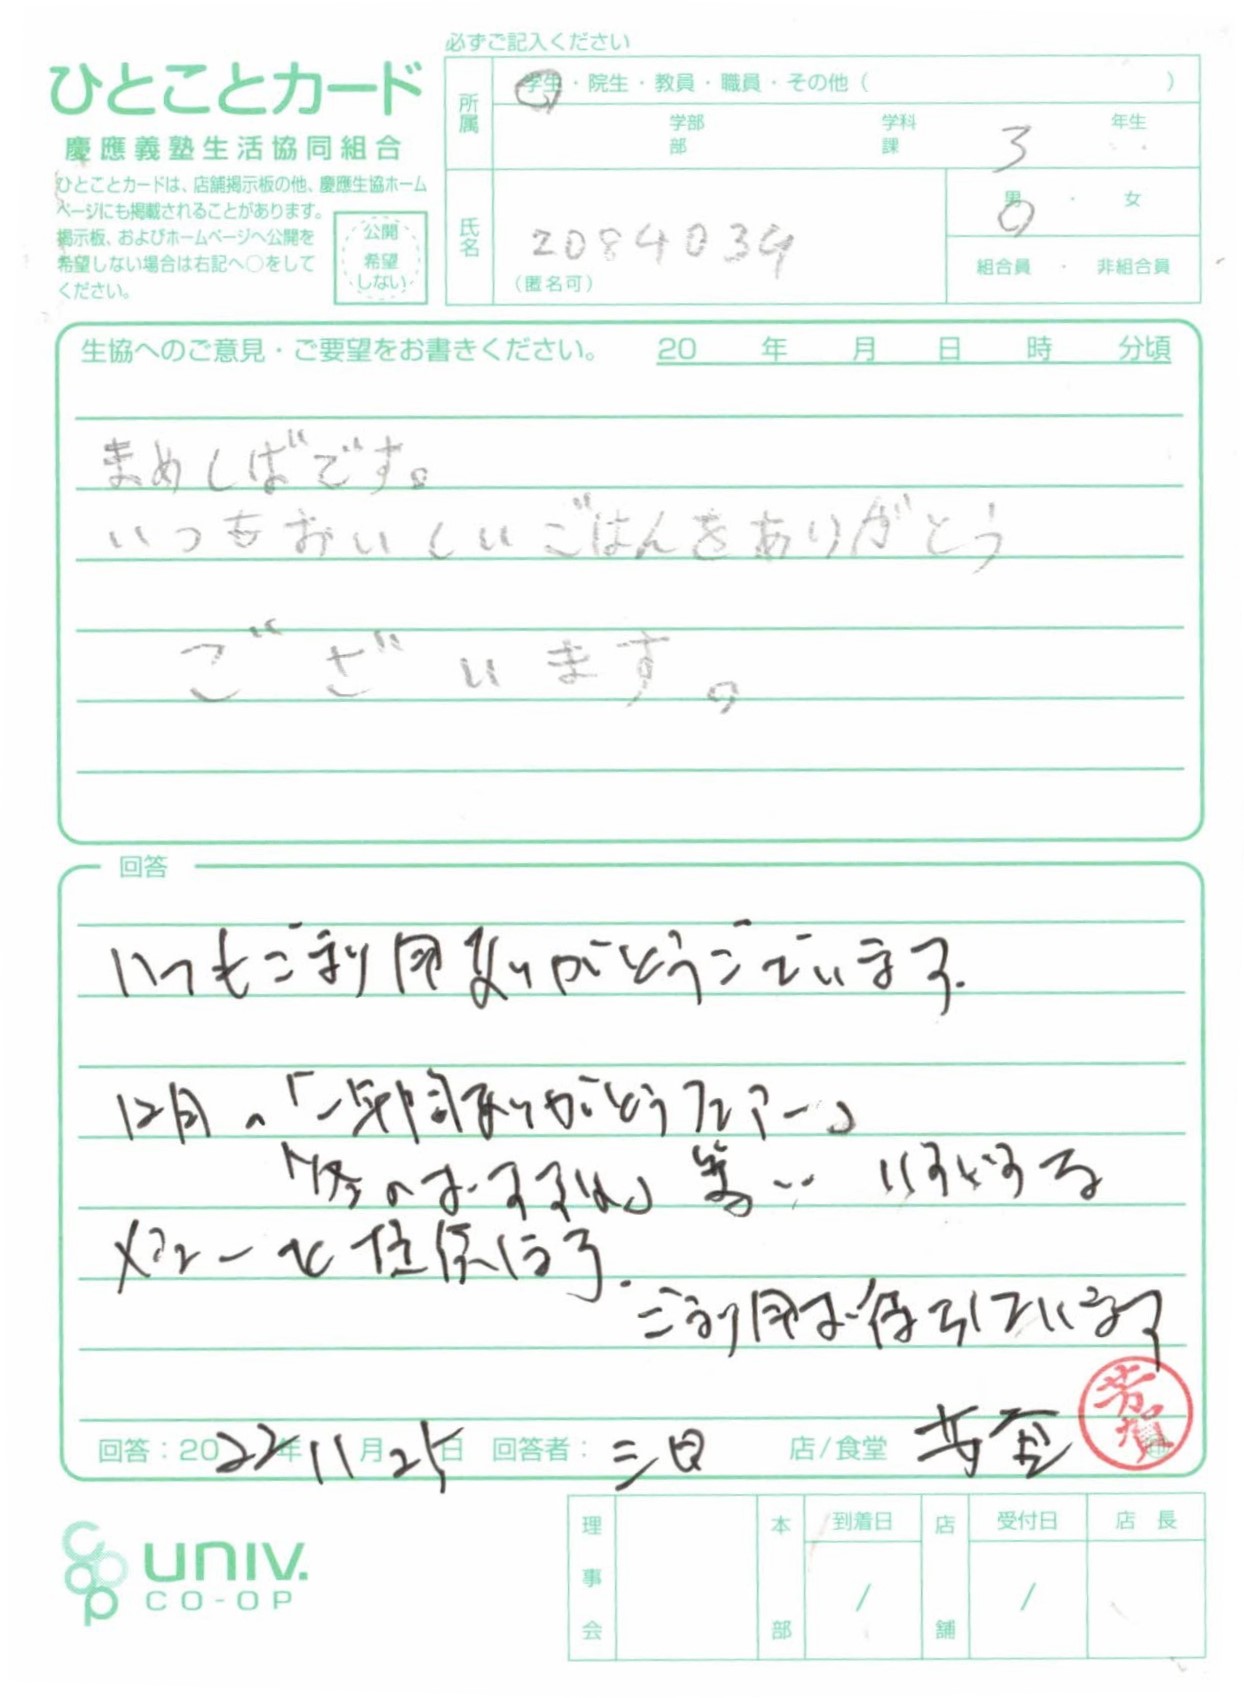 必ずご記入ください
ひとことカード
慶應義塾生活協同組合
ひとことカードは、店舗掲示板の他、慶應生協ホーム
ページにも掲載されることがあります。
掲示板、およびホームページへ公開を
希望しない場合は右記へ○をして
ください。
公開
希望
しない
所属
学生・院生・教員・職員・その他（　　）
学部 学科 3 年生
部 課
氏名
2084034
（匿名可）
男・女
組合員・非組合員
生協へのご意見・ご要望をお書きください。 20 年 月 日 時 分頃
まめしばです。
いつもおいしいごはんをありがとう
ございます。
回答
いつもご利用ありがとうございます.
12月、「一年間ありがとうフェアー」
おすすめ」等
メニューを
ご利用お待ちしています
回答：2022年11月25日 回答者： 三日 店/食堂 芳賀
芳賀
UNIV.
CO-OP
理事会 本部 到着日 店舗 受付日 店長
/ /